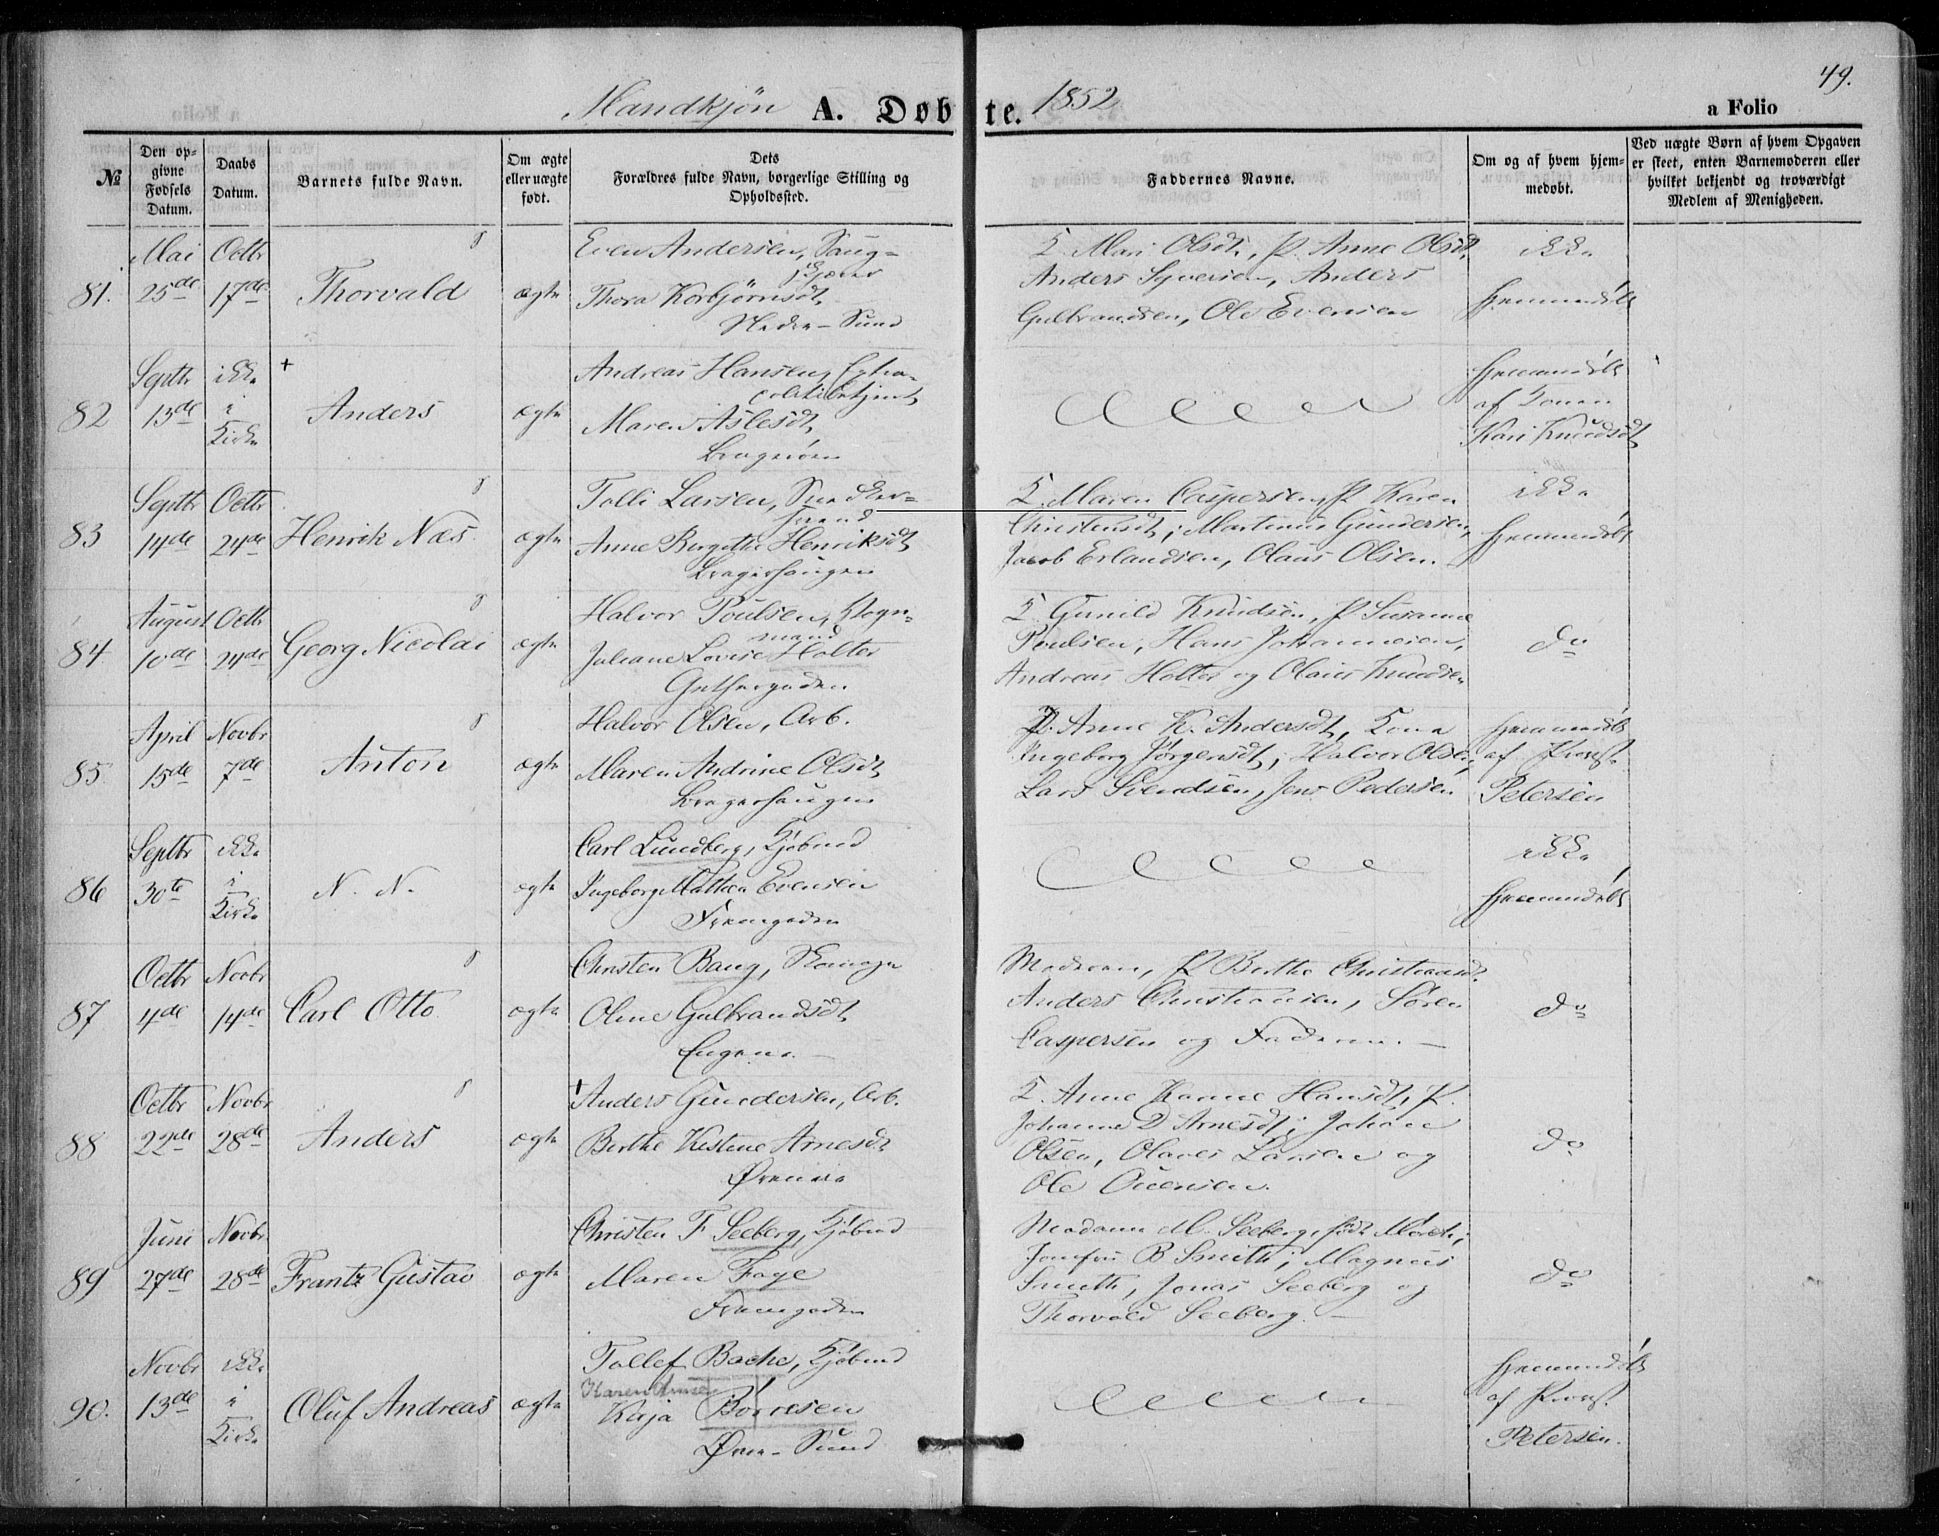 49.
Mandkjøn A. Døbte. 1852
a Folio
№
Den opgivne Fødsels Datum.
Daabs Datum.
Barnets fulde Navn.
Om ægte eller uægte født.
Dets Forældres fulde Navn, borgerlige Stilling og Opholdssted.
Faddernes Navne.
Om og af hvem hjemmedøbt.
Ved uægte Børn af hvem Opgaven er skeet, enten Barnemoderen eller hvilket bekjendt og troværdigt Medlem af Menigheden.
81. Mai 25de Octbr 17de Thorvald ægte
Even Andersen, Saug-
skjærer
Thora Korbjørnsdt.
Nedre-Sund
K. Mari Olsdt., P. Anne Olsdt.
Anders Syversen, Anders
Gulbrandsen, Ole Evensen
ikke
hjemmedøbt
82 Septbr 13de ikke i Kirke + Anders ægte
Andreas Hansen, Extra-
politibetjent
Maren Aslesdt.
Bragnæs
hjemmedøbt
af Konen
Kari Knudsdt.
83 Septbr 14de Octbr 24de Henrik Næs ægte
Tolli Larsen, Snedker-
svend
Anne Birgithe Henriksdt.
Bragerhaugen
K. Maren Caspersen, P. Karen
Christensdt; Martinus Gundersen,
Jacob Erlandsen, Olaus Olsen.
ikke
hjemmedøbt
84. August 10de Octbr 24de Georg Nicolai ægte
Halvor Poulsen, Vogn-
mand
Juliane Lovise Holter
K. Gunild Knudsen, P. Susanne
Poulsen, Hans Johannesen,
Andreas Holter og Olaus Knudsen
do
85. April 15de Novbr 7de Anton ægte
Halvor Olsen, Arb.
Maren Andrine Olsdt.
Bragerhaugen
P. Anne K. Andersdt, Kone
Ingeborg Jørgensdt; Halvor Olsen,
Lars Svendsen, Jens Pedersen
hjemmedøbt
af Provst
Petersen
86 Septbr 30te ikke i Kirke N. N. ægte
Carl Lundberg, Kjøbmd
Ingeborg Mathea Evensen
Strømgaden
ikke
hjemmedøbt
87 Octbr 4de Novbr 14de Carl Otto ægte
Christen Baug, Skomager
Oline Gulbrandsdt.
Engene.
Moderen, P. Berthe Christiansdt.
Anders Christiansen, Søren
Caspersen og Faderen.
do
88 Octbr 22de Novbr 28de Anders ægte
Anders Gundersen, Arb.
Berthe Kistine Arnesdt.
Ørenene
K. Anne Karine Hansdt, P.
Johanne D Arnesdt; Johan
Olsen, Olaves Larsen og
Ole Ouensen.
do
89 Juni 27de Novbr. 28de Frantz Gustav ægte
Christen F. Seeberg, Kjøbmd
Maren Faye
Strømgaden
Madame M. Seeberg, født Morch;
Jomfru B Smith; Magnus
Smith, Jonas Seeberg og
Thorvald Seeberg.
do
90. Novbr 13de ikke i Kirke Oluf Andreas ægte
Tollef Bache, Kjøbmd
Karen Anne
Kaja Børresen
Øvre-Sund
hjemmedøbt
af Provst
Petersen.